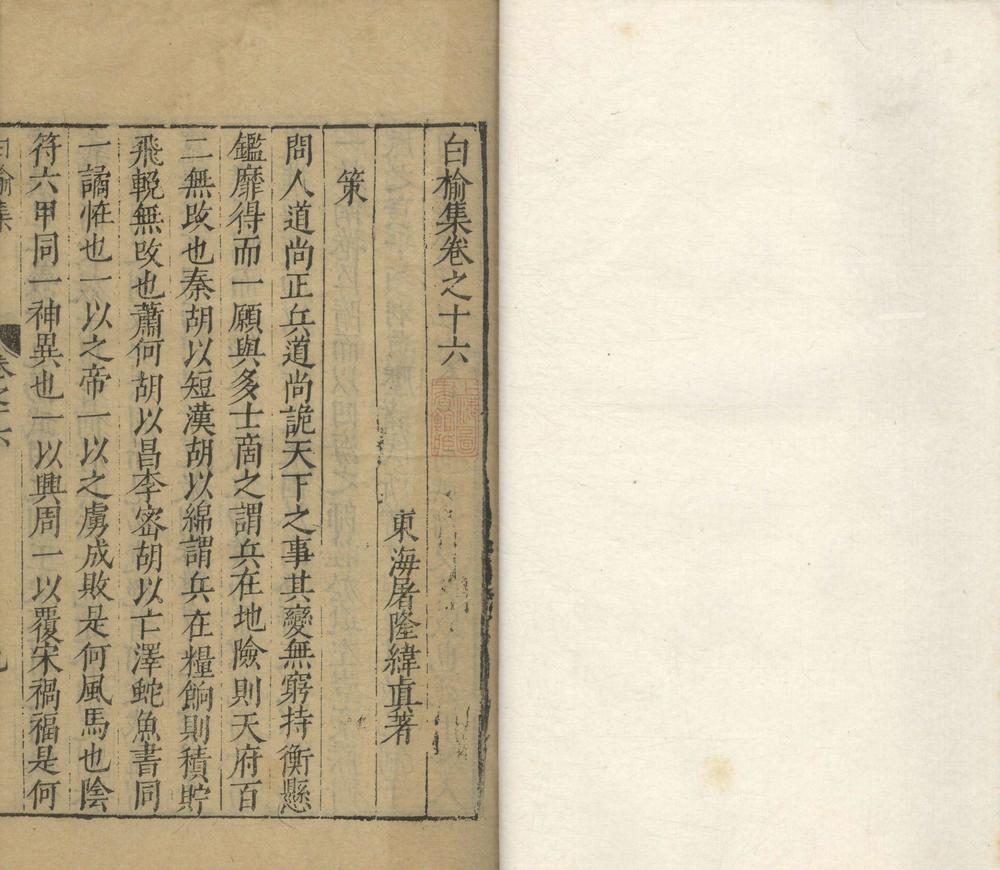 白榆集卷之十六
東海屠隆緯真著
策
問人道尚正兵道尚詭天下之事其變無窮持衡懸
鑑靡得而一願與多士商之謂兵在地險則天府百
二無敗也秦胡以短漢胡以綿謂兵在糧餉則積貯
飛輓無敗也蕭何胡以昌李密胡以亡澤蛇魚書同
一譎恠也一以之帝一以之虜成敗是何風馬也陰
符六甲同一神異也一以興周一以覆宋禍福是何
白榆集
卷之十六